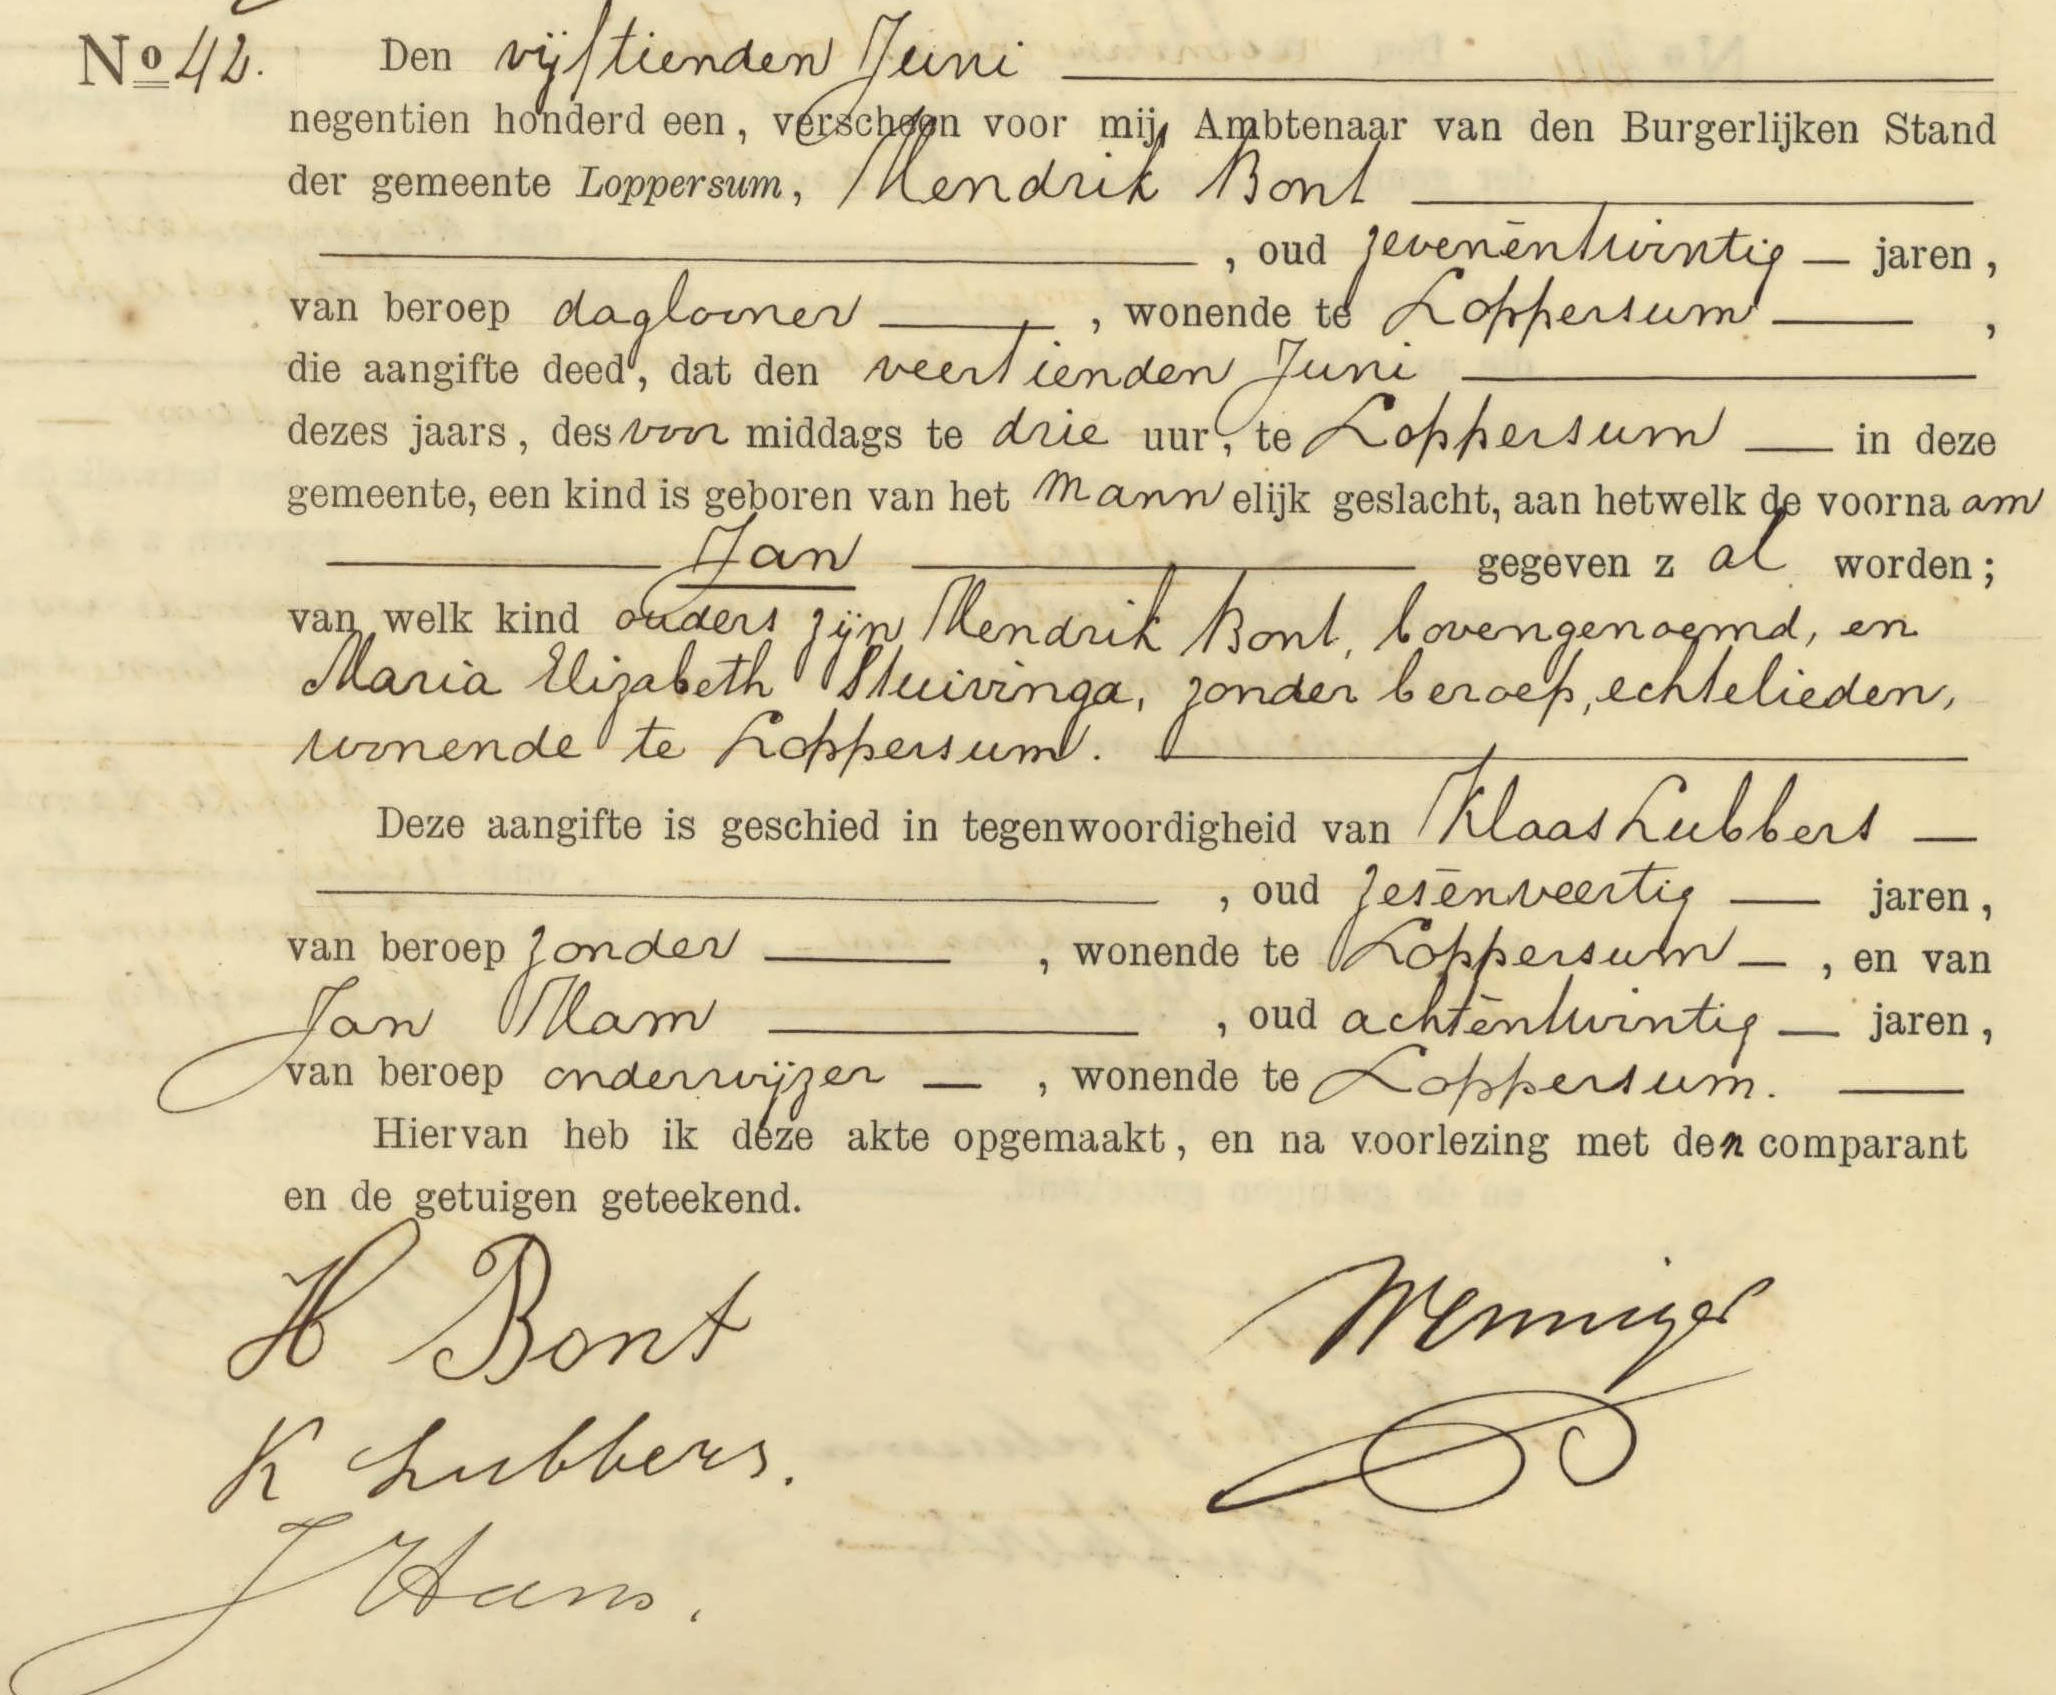 No 42. Den vijftienden Juni
negentien honderd een, verscheen voor mij, Ambtenaar van den Burgerlijken Stand
der gemeente Loppersum, Hendrik Bont
, oud zevenentwintig jaren,
van beroep dagloner, wonende te Loppersum,
die aangifte deed, dat den veertienden Juni
dezes jaars, des voor middags te drie uur, te Loppersum in deze
gemeente, een kind is geboren van het mannelijk geslacht, aan hetwelk de voornaam
Jan gegeven zal worden;
van welk kind ouders zijn Hendrik Bont, bovengenoemd, en
Maria Elizabeth Stuivinga, zonder beroep, echtelieden,
wonende te Loppersum.
Deze aangifte is geschied in tegenwoordigheid van Klaas Lubbers
, oud zesenveertig jaren,
van beroep zonder, wonende te Loppersum, en van
Jan Ham, oud achtentwintig jaren,
van beroep onderwijzer, wonende te Loppersum.
Hiervan heb ik deze akte opgemaakt, en na voorlezing met den comparant
en de getuigen geteekend.
H Bont
K Lubbers.
J Ham.